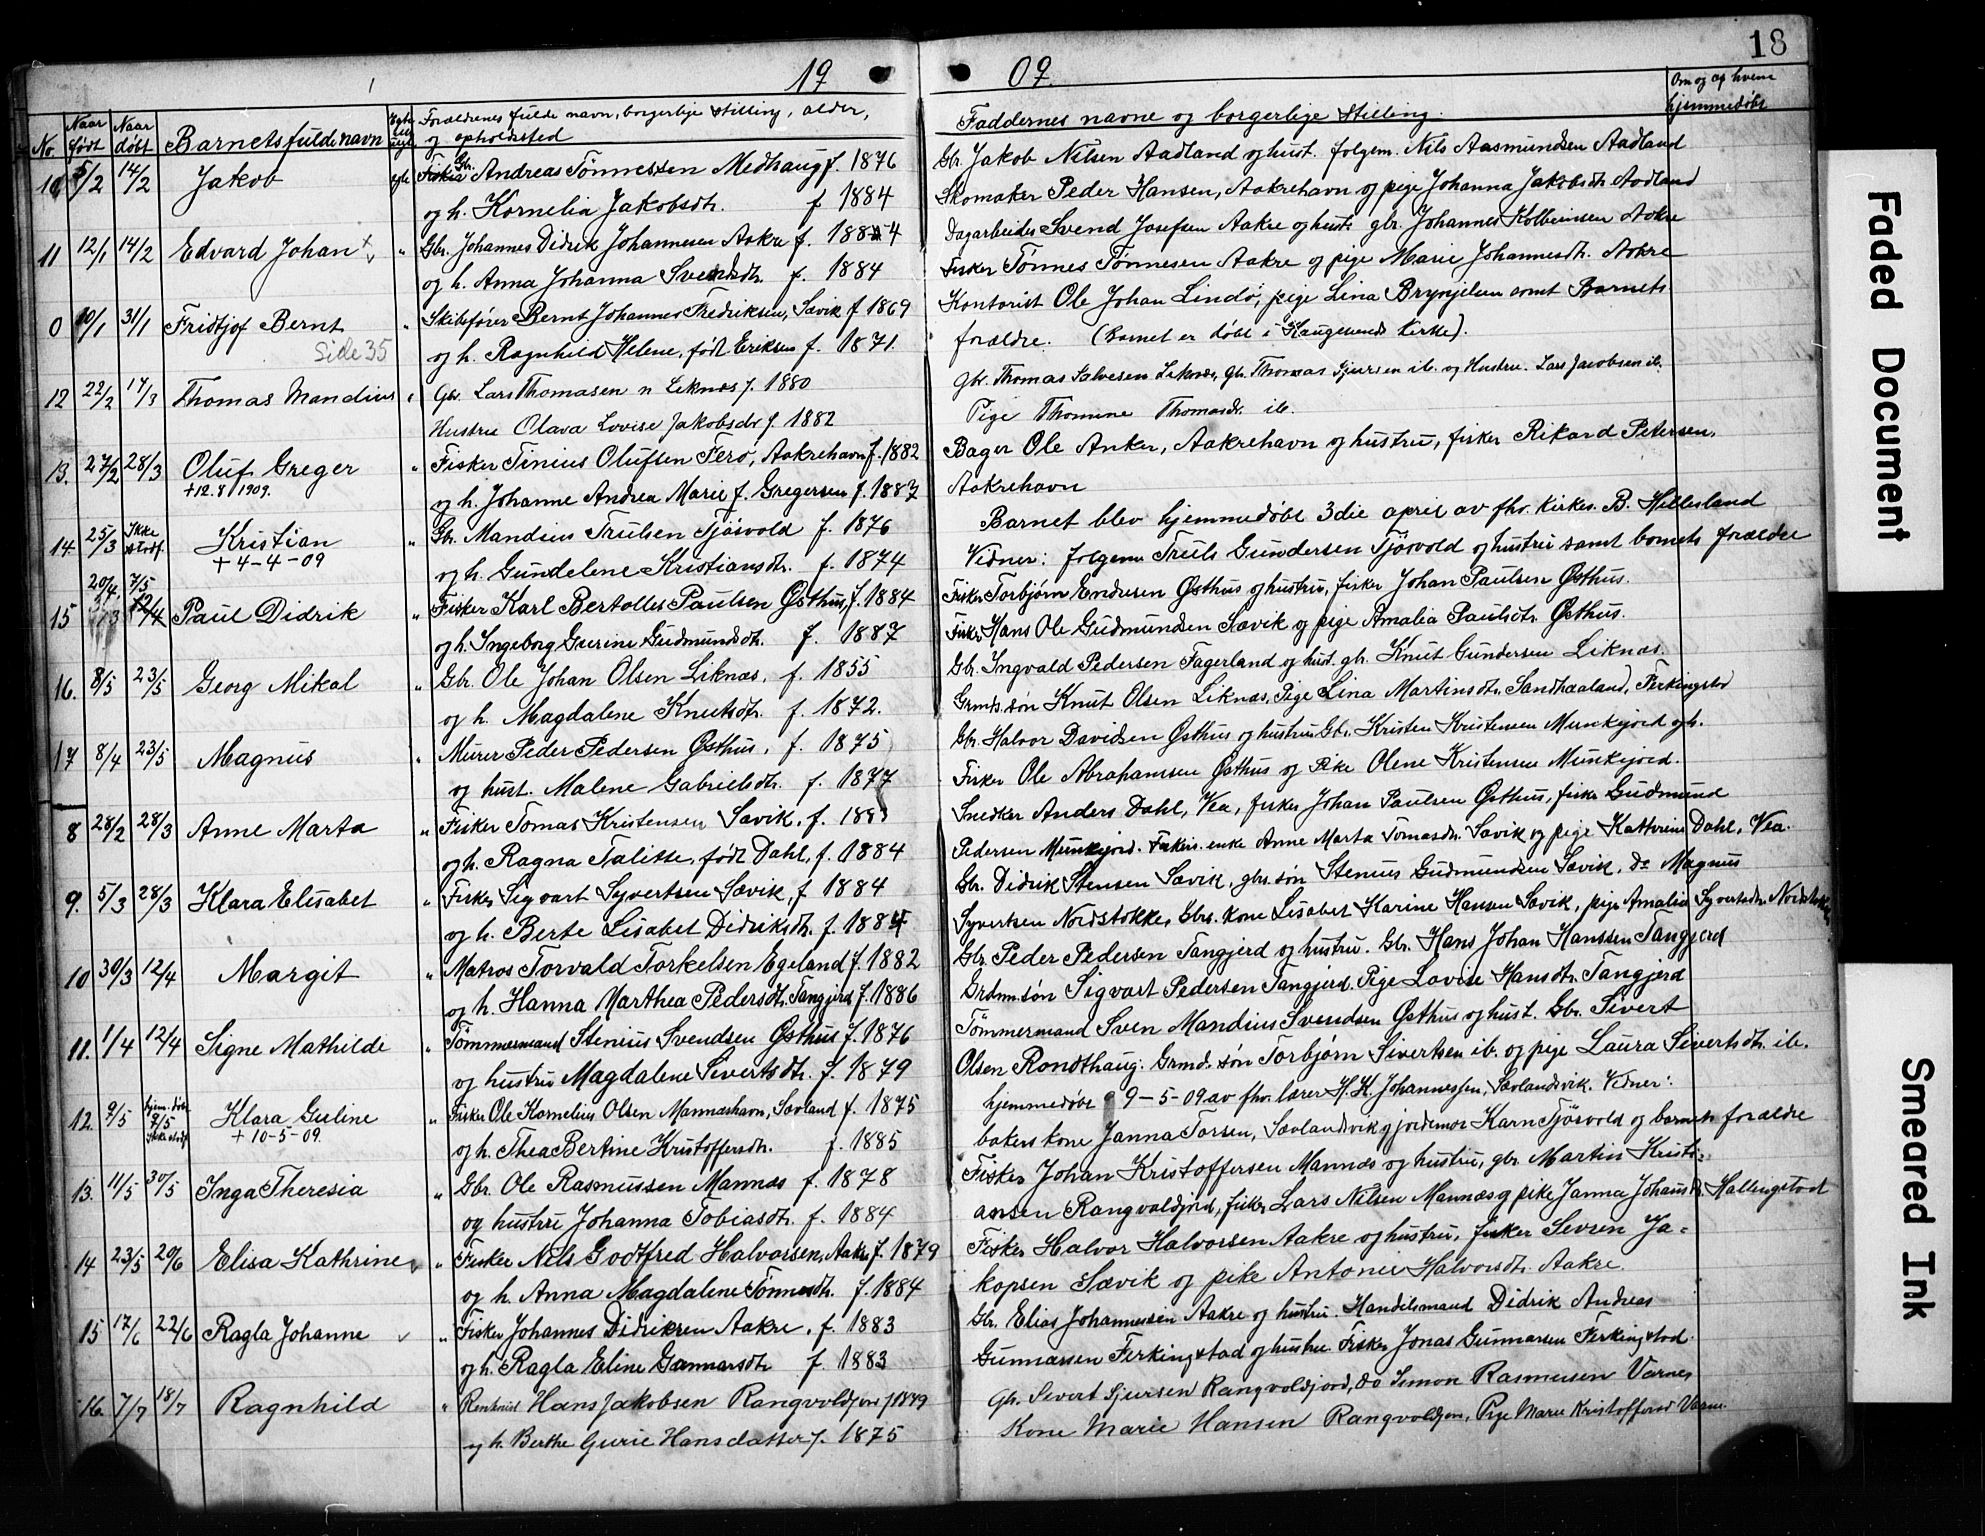 18
19 09.
No. Naar født Naar døbt Barnets fulde navn Forældrenes fulde navn, borgerlige stilling, alder, og opholdssted Faddernes navne og borgerlige stilling. Om og af hvem hjemmedøbt
10 5/2 14/2 Jakob egte Gbr. Andreas Tönnessen Medhaug f. 1876 Gbr. Jakob Nilsen Aadland og hust. folgem. Nils Aasmundsen Aadland
og h. Kornelia Jakobsdtr. f 1884 Skomaker Peder Hansen, Aakrehavn og pige Johanna Jakobsdtr Aadland
11 12/1 14/2 Edvard Johan " Gbr. Johannes Didrik Johannesen Aakre f. 1884 Dagarbeider Svend Josefsen Aakre og hust. gbr. Johannes Kolbeinsen Aakre
og h. Anna Johanna Svendsdtr. f. 1884 Fisker Tönnes Tönnesen Aakre og pige Marie Johannesdtr. Aakre
0 10/1 31/1 Fridtjof Bernt " Skibsfører Bernt Johannes Fredriksen, Sævik f 1869 Kontorist Ole Johan Lindö, pige Lina Brynjelsen samt Barnets
Side 35 og h. Ragnhild Helene, født Eriksen f. 1871. forældre. (Barnet er døbt i Haugesunds Kirke).
12 22/2 17/3 Thomas Mandius " Gbr. Lars Thomasen n Liknes f. 1880 Gbr. Thomas Salvesen Liknes, gbr. Thomas Sjursen ib. og Hustru. Lars Jacobsen ib.
Hustru Olava Lovise Jakobsdtr f 1882 Pige Thomine Thomasdr. ib.
13. 27/2 28/3 Oluf Greger " Fisker Tinius Olufsen Ferö, Aakrehavn f. 1882 Bager Ole Anker, Aakrehavn og hustru, fisker Rikard Petersen,
+12.8 1909. og h. Johanne Andrea Marie f. Gregersen f. 1887 Aakrehavn
14. 25/3 Ikke stadf. Kristian " Gbr. Mandius Trulsen Tjösvold f. 1876 Barnet blev hjemmedøbt 3die april av fhv. kirkes. B. Hillesland
+ 4-4-09 og h. Gundelene Kristiansdtr. f. 1874 Vidner: folgem. Truls Gundersen Tjösvold og hustru samt barnets forældre
15 20/4 7/5 Paul Didrik " Fisker Karl Bertolles Paulsen Østhus, f. 1884 Fisker Torbjørn Endresen Østhus og hustru, fisker Johan Paulsen Østhus.
og h. Ingeborg Gurine Gudmundsdtr. f. 1887 Fisker Hans Ole Gudmundsen Sævik og pige Amalia Paulsdtr. Østhus.
16. 8/5 23/5 Georg Mikal " Gbr. Ole Johan Olsen Liknæs, f. 1855 Gbr. Ingvald Pedersen Fagerland og hust. gbr. Knut Gundersen Liknæs.
og h. Magdalene Knutsdtr. f. 1872. Grmds. søn Knut Olsen Liknæs, Pige Lina Martinsdtr. Sandhaaland, Ferkingstad
17 8/4 23/5 Magnus " Murer Peder Pedersen Østhus, f. 1875 Gbr. Halvor Davidsen Østhus og hustru Gbr. Kristen Kristensen Munkejord og h.
og hust. Malene Gabrielsdtr. f. 1877 Fisker Ole Abrahamsen Østhus og Pike Olene Kristensen Munkejord.
8 28/2 28/3 Anne Marta " Fisker Tomas Kristensen Sævik, f. 1883 Snedker Anders Dahl, Vea, fisker Johan Paulsen Østhus, fisker Gudmund
og h. Ragna Talitte, født Dahl, f. 1884 Pedersen Munkejord. Fiskers enke Anne Marta Tomasdtr. Sævik og pige Kathrine Dahl, Vea.
9. 5/3 28/3 Klara Elisabet " Fisker Sigvart Syvertsen Sævik, f 1884 Gbr. Didrik Stensen Sævik, gbrs. søn Stenius Gudmundsen Sævik, do Magnus
og h. Berte Lisabet Didriksdtr. f. 1884 Syvertsen Nordstokke, Gbrs. kone Lisabet Karine Hansen Sævik, pige Amalia Syvertsdtr. Nordstokke
10 30/3 12/4 Margit " Matros Torvald Torkelsen Egeland f. 1882 Gbr. Peder Pedersen Tangjerd og hustru. Gbr. Hans Johan Hanssen Tangjerd
og h. Hanna Marthea Pedersdtr. Tangjerd f. 1886 Grdm. søn Sigvart Pedersen Tangjerd. Pige Lovise Hansdtr. Tangjerd
11. 1/4 12/4 Signe Mathilde " Tømmermand Stenius Svendsen Østhus f. 1876 Tömmermand Sven Mandius Svendsen Østhus og hust. Gbr. Sivert
og hustru Magdalene Sivertsdtr. f. 1879 Olsen Rondthaug. Grmd. søn Torbjørn Sivertsen ib. og pige Laura Sivertsdtr. ib.
12. 9/5 hjem. døbt 9/5 Ikke stadf Klara Guline " Fisker Ole Kornelius Olsen Mannæshavn, Sævland f. 1875 hjemmedøbt 9-5-09 av fhv. lærer H. K. Johannessen, Sævlandsvik. Vidner:
+ 10-5-09. og h. Thea Bertine Kristoffersdtr. f. 1885 bakers kone Janna Torsen, Sævlandsvik og jordemor Karn Tjösvold og barnets forældre
13. 11/5 30/5 Inga Theresia " Gbr. Ole Rasmussen Mannæs f. 1878 Fisker Johan Kristoffersen Mannæs og hustru, gbr. Martin Kristi-
og hustru Johanna Tobiasdtr. f. 1884 ansen Rangvaldjord, fisker Lars Nilsen Mannæs og pike Janna Johansdtr. Hallingstad
14 23/5 20/6 Elisa Kathrine " Fisker Nils Godtfred Halvorsen, Aakre f. 1879 Fisker Halvor Halvorsen Aakre og hustru, fisker Sevren Ja-
og h. Anna Magdalene Tönnesdtr. f. 1884 kopsen Sævik og pike Antonie Halvorsdtr. Aakre.
15 17/6 22/6 Ragla Johanne " Fisker Johannes Didriksen Aakre, f. 1883 Gbr. Elias Johannessen Aakre og hustru. Handelsmand Didrik Andreas
og h. Ragla Eline Gunnarsdtr. f. 1883 Gunnarsen Ferkingstad og hustru. Fisker Jonas Gunnarsen Ferkingstad.
16. 7/7 18/7 Ragnhild " Hans Jakobsen Rangvoldjord f 1879 Gbr. Sivert Sjursen Rangvoldjord, do Simon Rasmusen Varnes
og h. Berthe Gurie Hansdatter f. 1875 Kone Marie Hansen Rangvoldjor, Pige Marie Kristoffersd Varne.
Faded Document
Smeared Ink